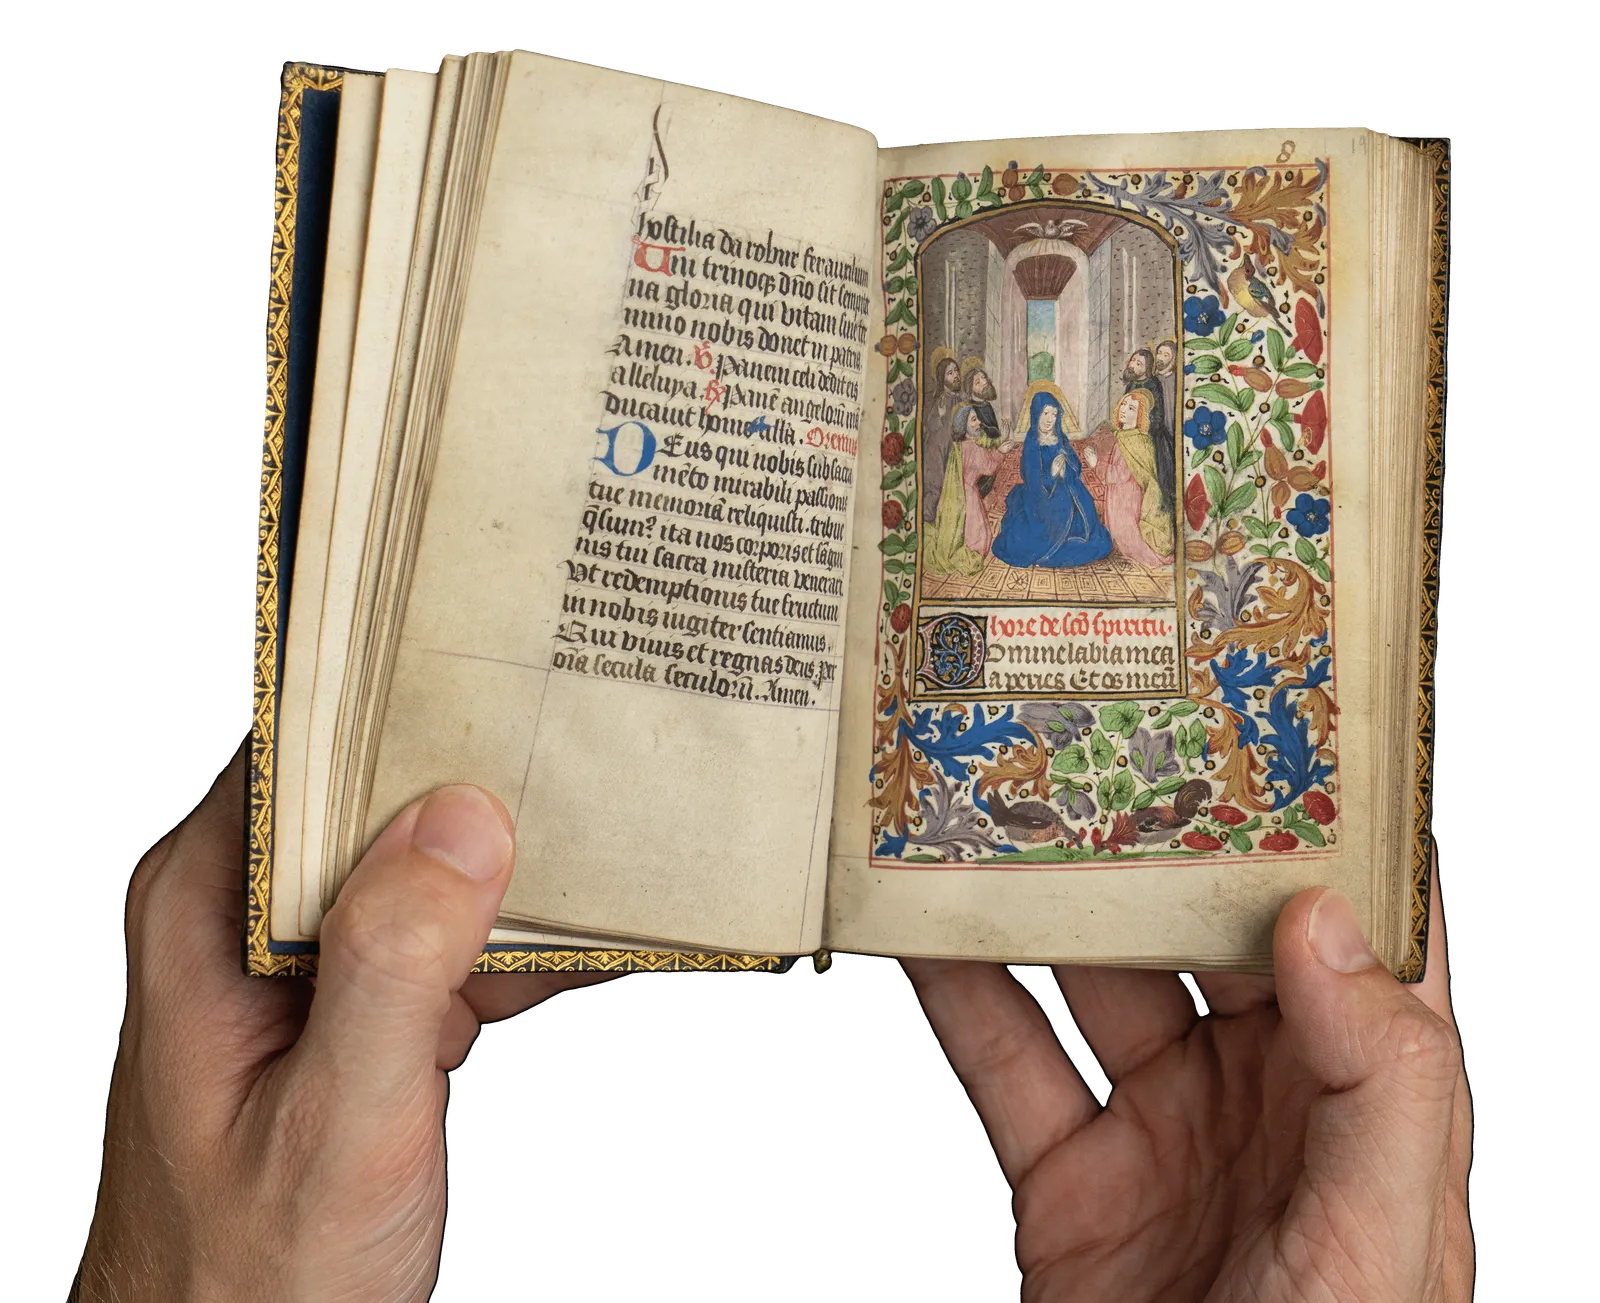 hostilia da robur fer auxilium
Uni trinoq; dño sit sempit
na gloria qui vitam sine ter
mino nobis donet in patria
Amen. v̄ Panem celi dedit eis
alleluya. ꝶ Panē angeloꝝ mā
ducauit homo alla. Oremus
DEus qui nobis sub sacra
mēto mirabili passionis
tue memoriā reliquisti. tribue
q̄sumꝰ ita nos corporis et sāgui
nis tui sacra misteria venerari
Vt redemptionis tue fructum
in nobis iugiter sentiamus.
Qui viuis et regnas deus. Per
oīa secula seculoꝝ. Amen.
8
19
hore de scō spiritu.
Domine labia mea
aperies Et os meū